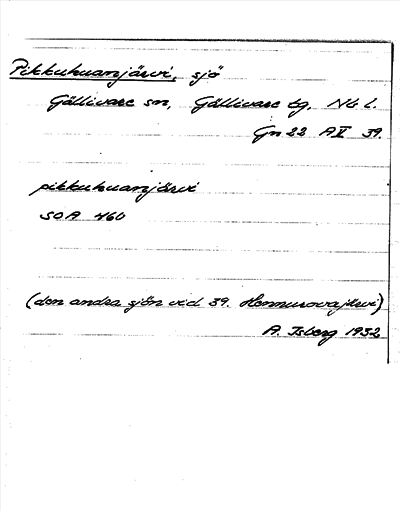 Pikkukuanjärvi, sjö
Gällivare sn, Gällivare tg. Nb l.
Gn 22 A V 39.
pikkukuanjärvi
SOA 460
(den andra sjön vid 39. Hennurovajärvi)
A. Isberg 1932